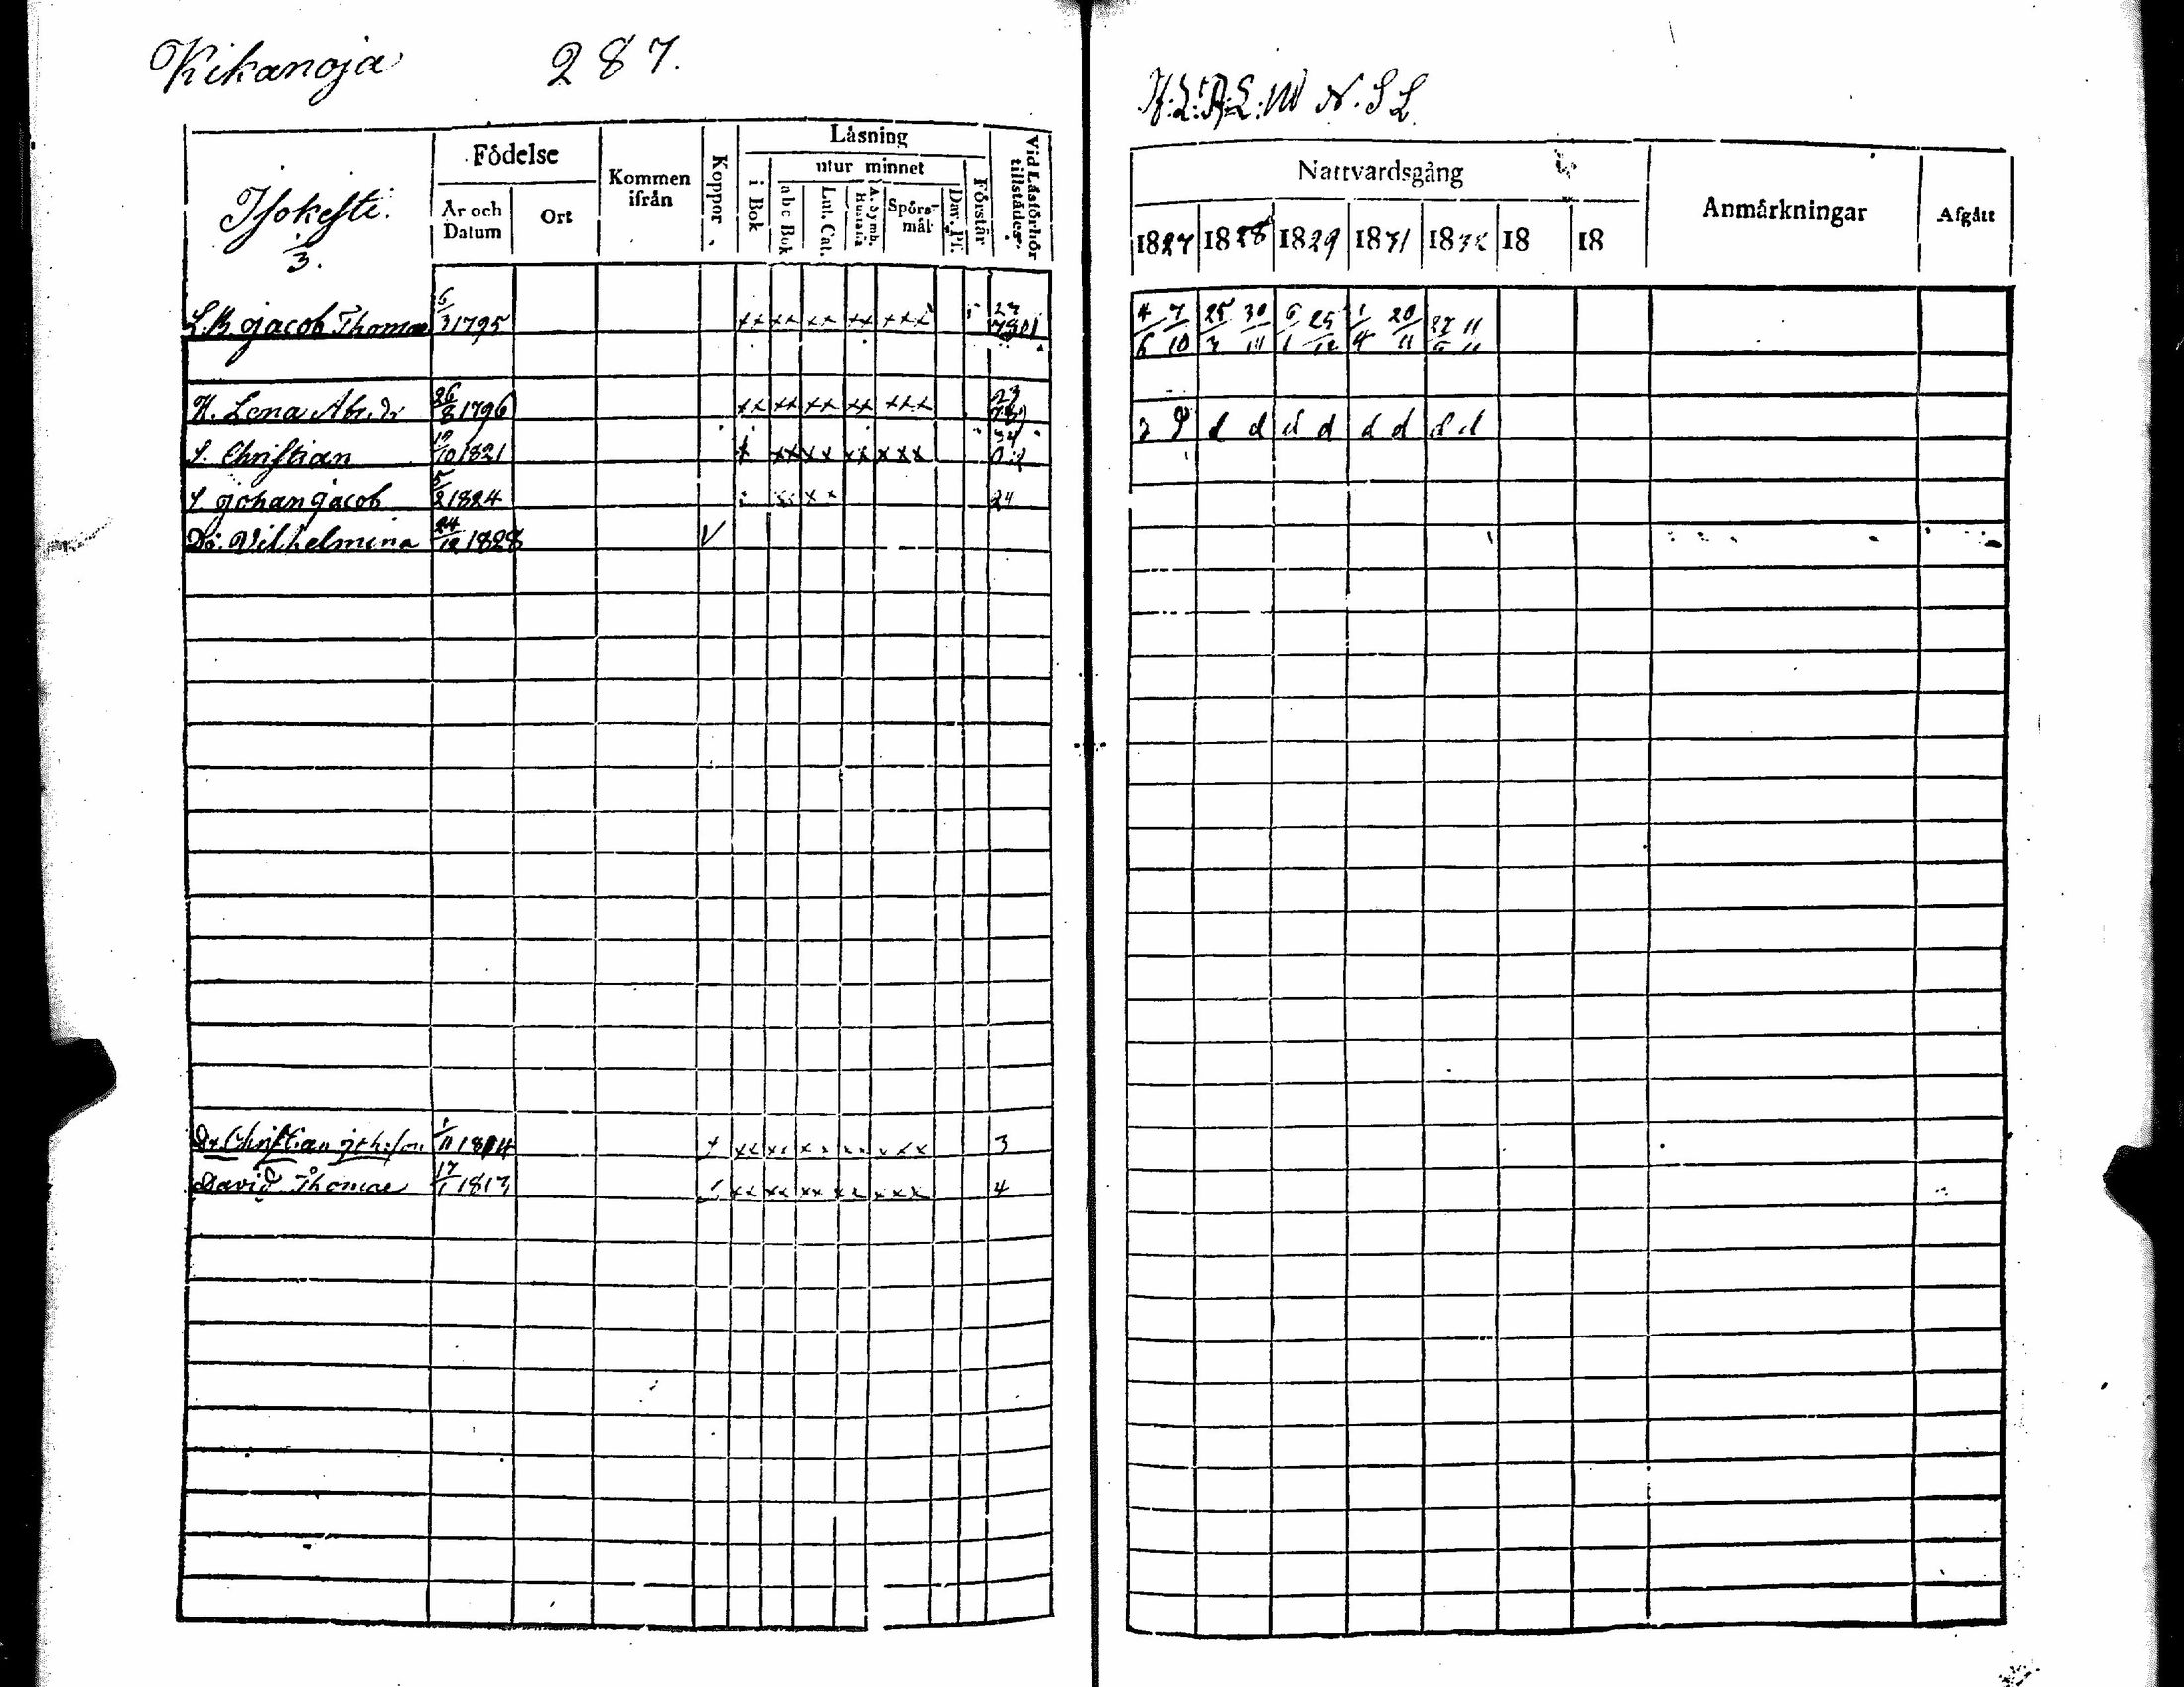 Kikanoja 287.
Isokesti.
3.
Födelse
År och Datum
Ort
Kommen ifrån
Koppor
Låsning
i Bok
utur minnet
abc Bok
Lut. Cat.
A. Symb. Hustafla
Spörsmål
Dav. Ps.
Förstår
Vid Låsförhör tillstådes
L.B. Jacob Thomae 6/3 1795 xx xx xx xx xxx
H. Lena Abr.dr 26/8 1796 xx xx xx xx xxx
S. Christian 19/10 1821 x xx xx xx xxx
S. Johan Jacob 5/2 1824 xx 24
Dr. Vilhelmina 24/12 1828 V
Dr. Christian Joh:son 1/11 1814 x xx xx xx xx xxx 3
David Thomae 17/1 1813 xx xx xx xx xxx 4
N. S L.
Nattvardsgång
1827 1828 1829 1831 1832 18 18
Anmårkningar
Afgått
4/6 7/10 25/3 30/11 6/1 25/12 1/4 20/11
d d d d d d d d